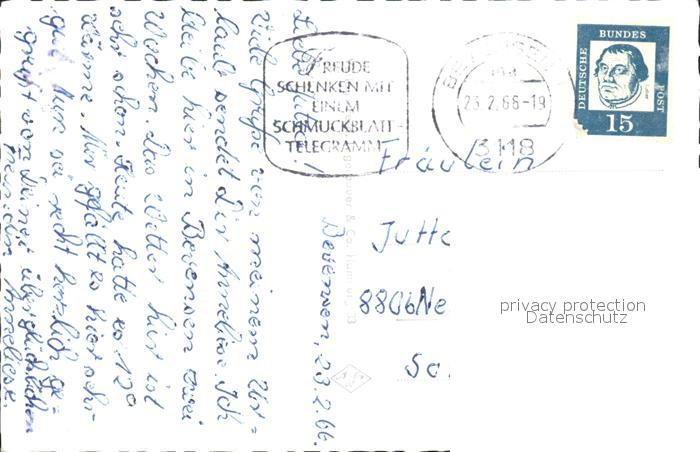 Bevensen, 23.2.66.
Liebe Jutta!
Viele Grüße von meinem Ur-
laub sendet Dir Anneliese. Ich
bleibe hier in Bevensen zwei
Wochen. Das Wetter hier ist
sehr schön. Heute hatte es 12°
Wärme. Mir gefällt es hier sehr
gut. Nun sei recht herzlich ge-
grüßt von Deiner überglücklichen
Anneliese.
FREUDE
SCHENKEN MIT
EINEM
SCHMUCKBLATT-
TELEGRAMM
23.2.66-19
3118
DEUTSCHE
BUNDES
POST
15
Fräulein
Jutt
8806 Ne
privacy protection
Datenschutz